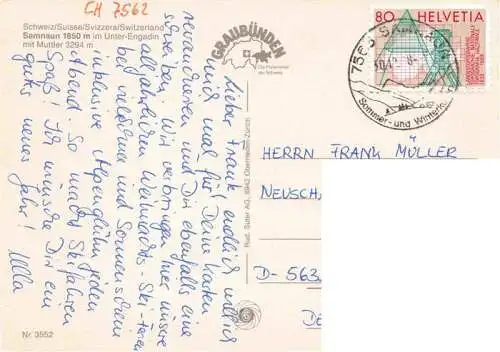 CH 7562
Schweiz/Suisse/Svizzera/Switzerland
Samnaun 1850 m im Unter-Engadin
mit Muttler 3294 m
GRAUBÜNDEN
Die Ferienecke
der Schweiz
80 HELVETIA
7563 SAMNAUN
Sommer- und Winterk
Lieber Frank, endlich will ich
mich mal für Deine Karten
revanchieren und Dir ebenfalls eine
schreiben. Wir verbringen hier unsere
alljährlichen Weihnachts-Ski-Ferien
bei verschneit und Sonnenschein
inklusive Alpenglühn jeden
Abend. So macht Skifahren
Spaß! Ich wünsche Dir ein
gutes neues Jahr!
Ulla
HERRN FRANK MÜLLER
NEUSCH
D-563
Rud. Suter AG, 8942 Oberrieden-Zürich
Nr. 3552